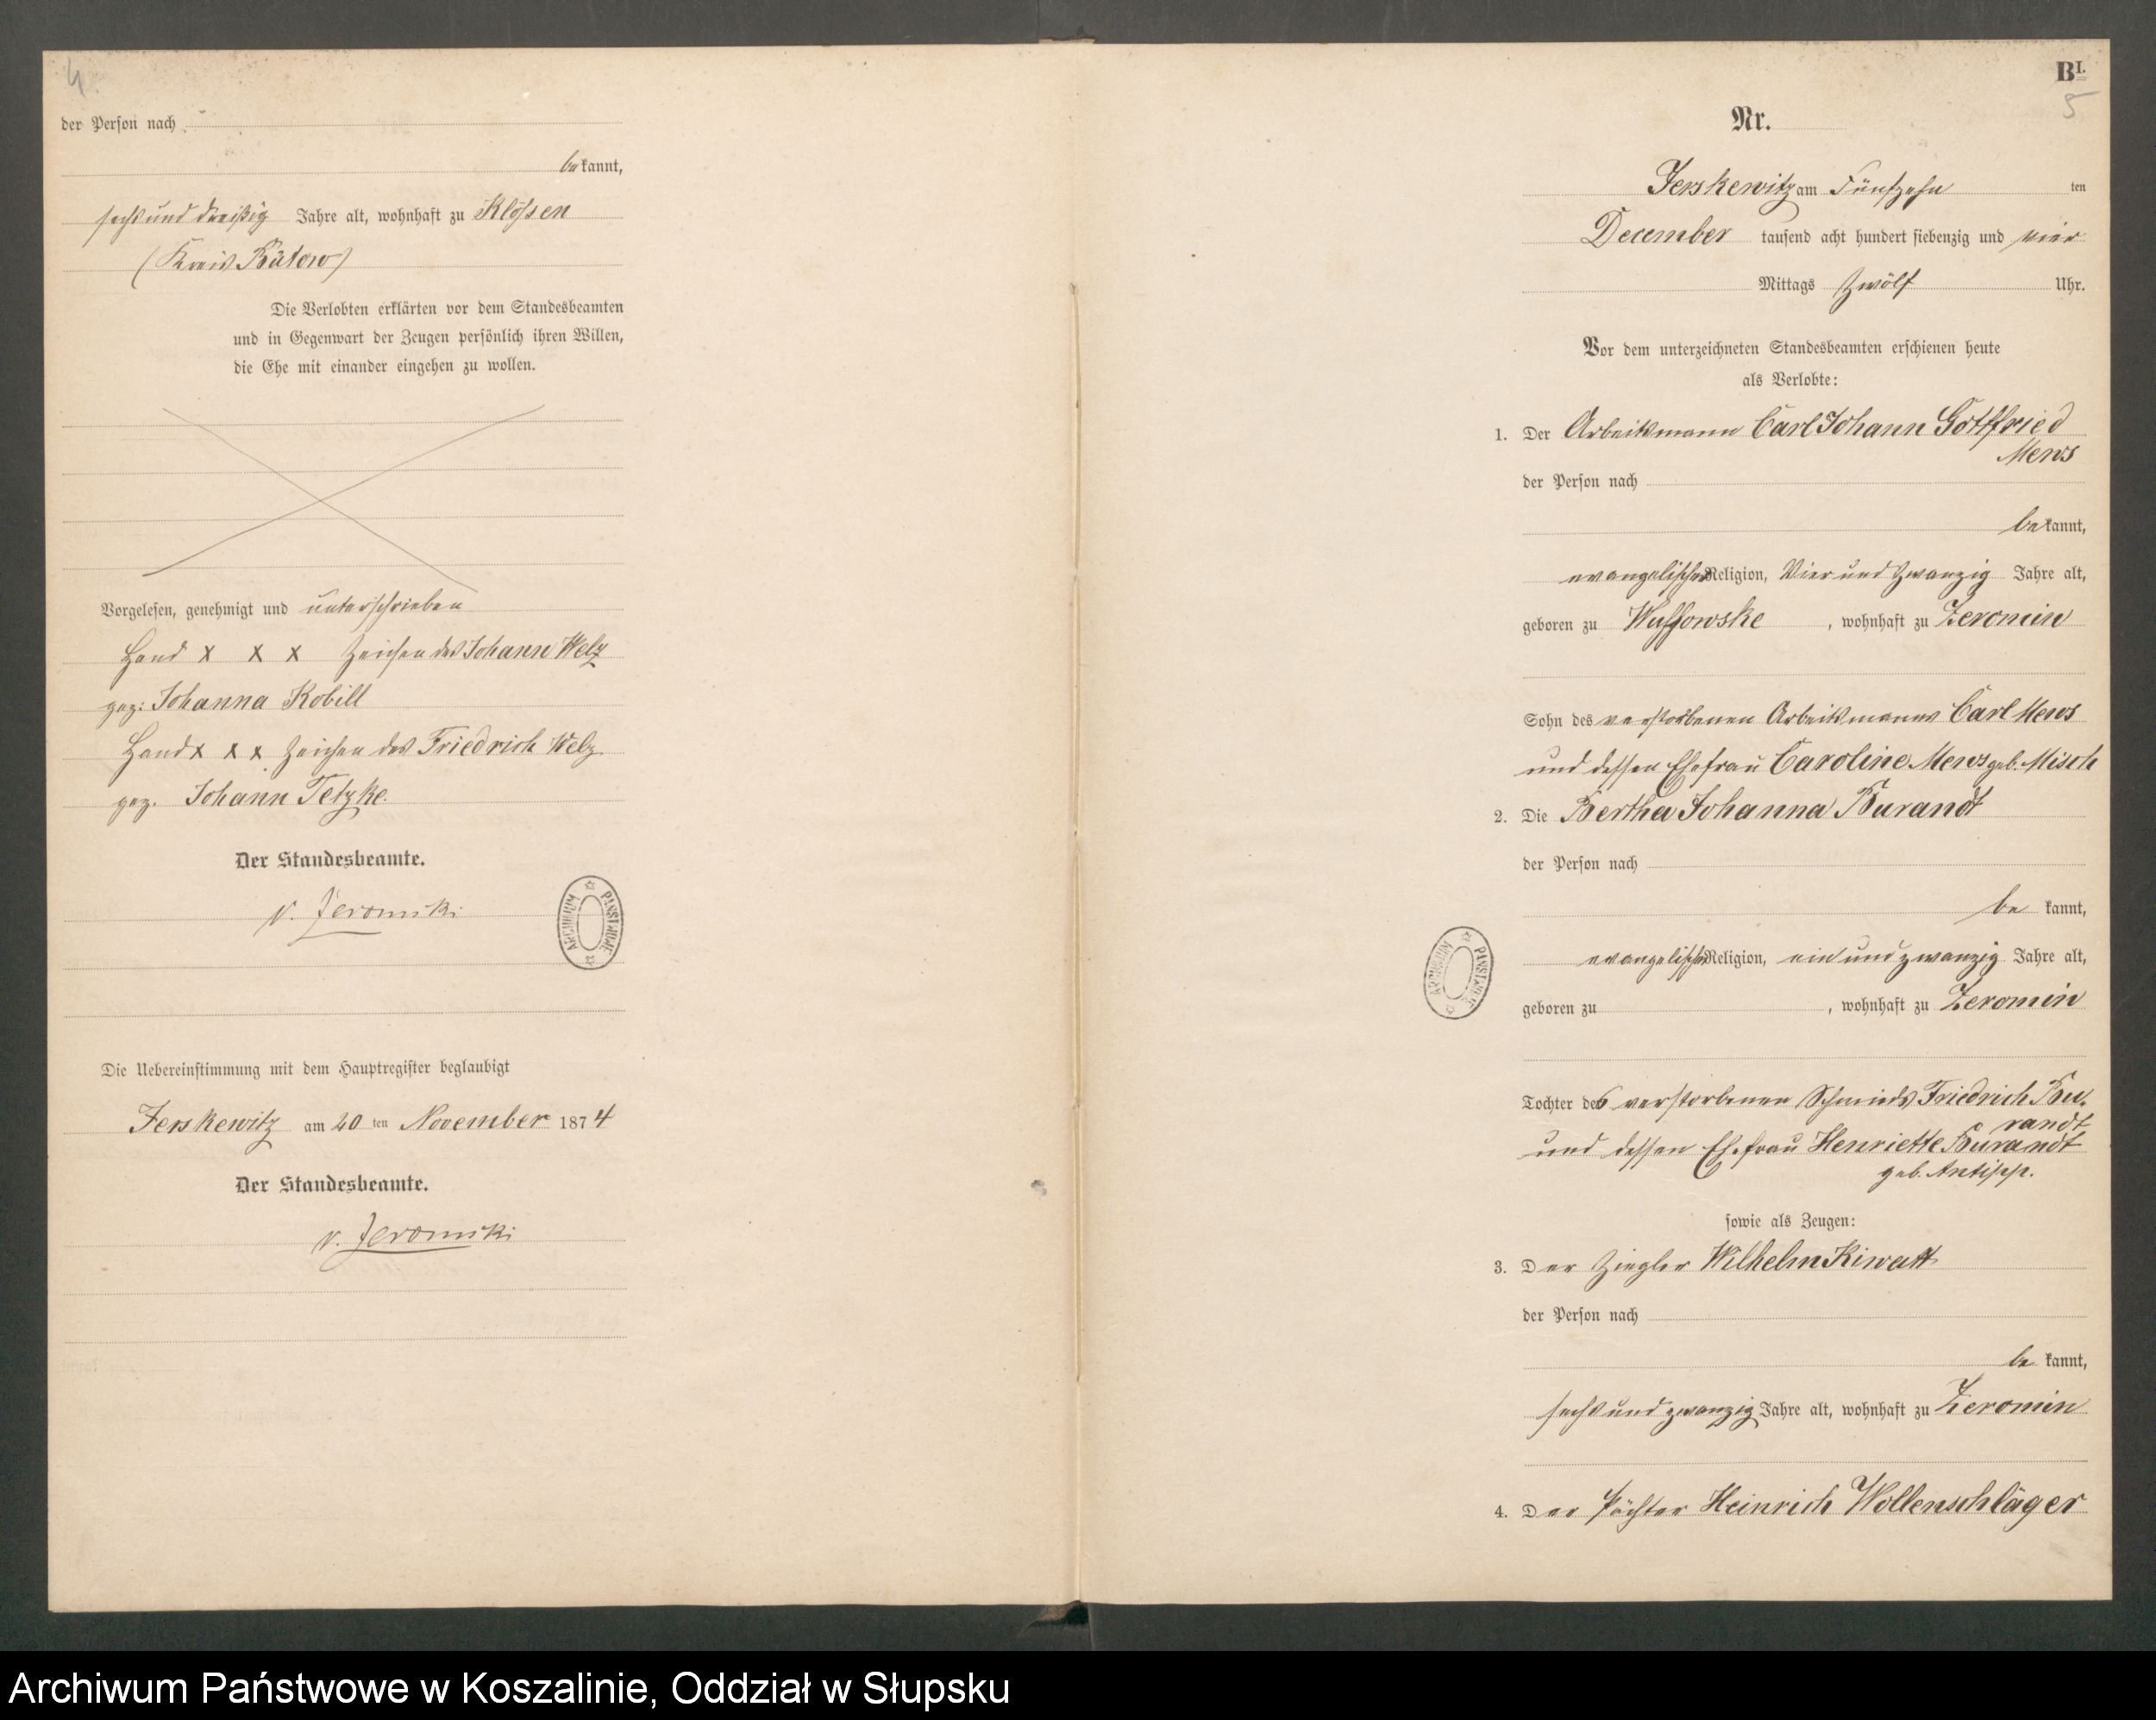 4
der Person nach
bekannt,
sechs und dreißig Jahre alt, wohnhaft zu Klössen
(Kreis Bütow)
Die Verlobten erklärten vor dem Standesbeamten
und in Gegenwart der Zeugen persönlich ihren Willen,
die Ehe mit einander eingehen zu wollen.
Vorgelesen, genehmigt und unterschrieben
Hand x x x Zeichen des Johann Welz
gez: Johanna Kobill
Hand x x x Zeichen des Friedrich Welz
gez. Johann Tetzke.
Der Standesbeamte.
v. Jeromski
ARCHIWUM PAŃSTWOWE
Die Uebereinstimmung mit dem Hauptregister beglaubigt
Jerskewitz am 20 ten November 1874
Der Standesbeamte.
v. Jeromski
BI.
5
Nr.
Jerskewitz am Fünfzehn ten
December tausend acht hundert siebenzig und vier
Mittags Zwölf Uhr.
Vor dem unterzeichneten Standesbeamten erschienen heute
als Verlobte:
1. Der Arbeitsmann Carl Johann Gottfried
Mews
der Person nach
bekannt,
evangelischer Religion, Vier und Zwanzig Jahre alt,
geboren zu Wussowske, wohnhaft zu Zeromin
Sohn des verstorbenen Arbeitsmanns Carl Mews
und dessen Ehefrau Caroline Mews geb. Misch
2. Die Bertha Johanna Burandt
der Person nach
bekannt,
evangelischer Religion, ein und zwanzig Jahre alt,
geboren zu , wohnhaft zu Zeromin
ARCHIWUM PAŃSTWOWE
Tochter des verstorbenen Schmieds Friedrich Bu-
randt
und dessen Ehefrau Henriette Burandt
geb. Antipp.
sowie als Zeugen:
3. Der Ziegler Wilhelm Kiwatt
der Person nach
bekannt,
sechs und zwanzig Jahre alt, wohnhaft zu Zeromin
4. Der Pächter Heinrich Wollenschläger
Archiwum Państwowe w Koszalinie, Oddział w Słupsku